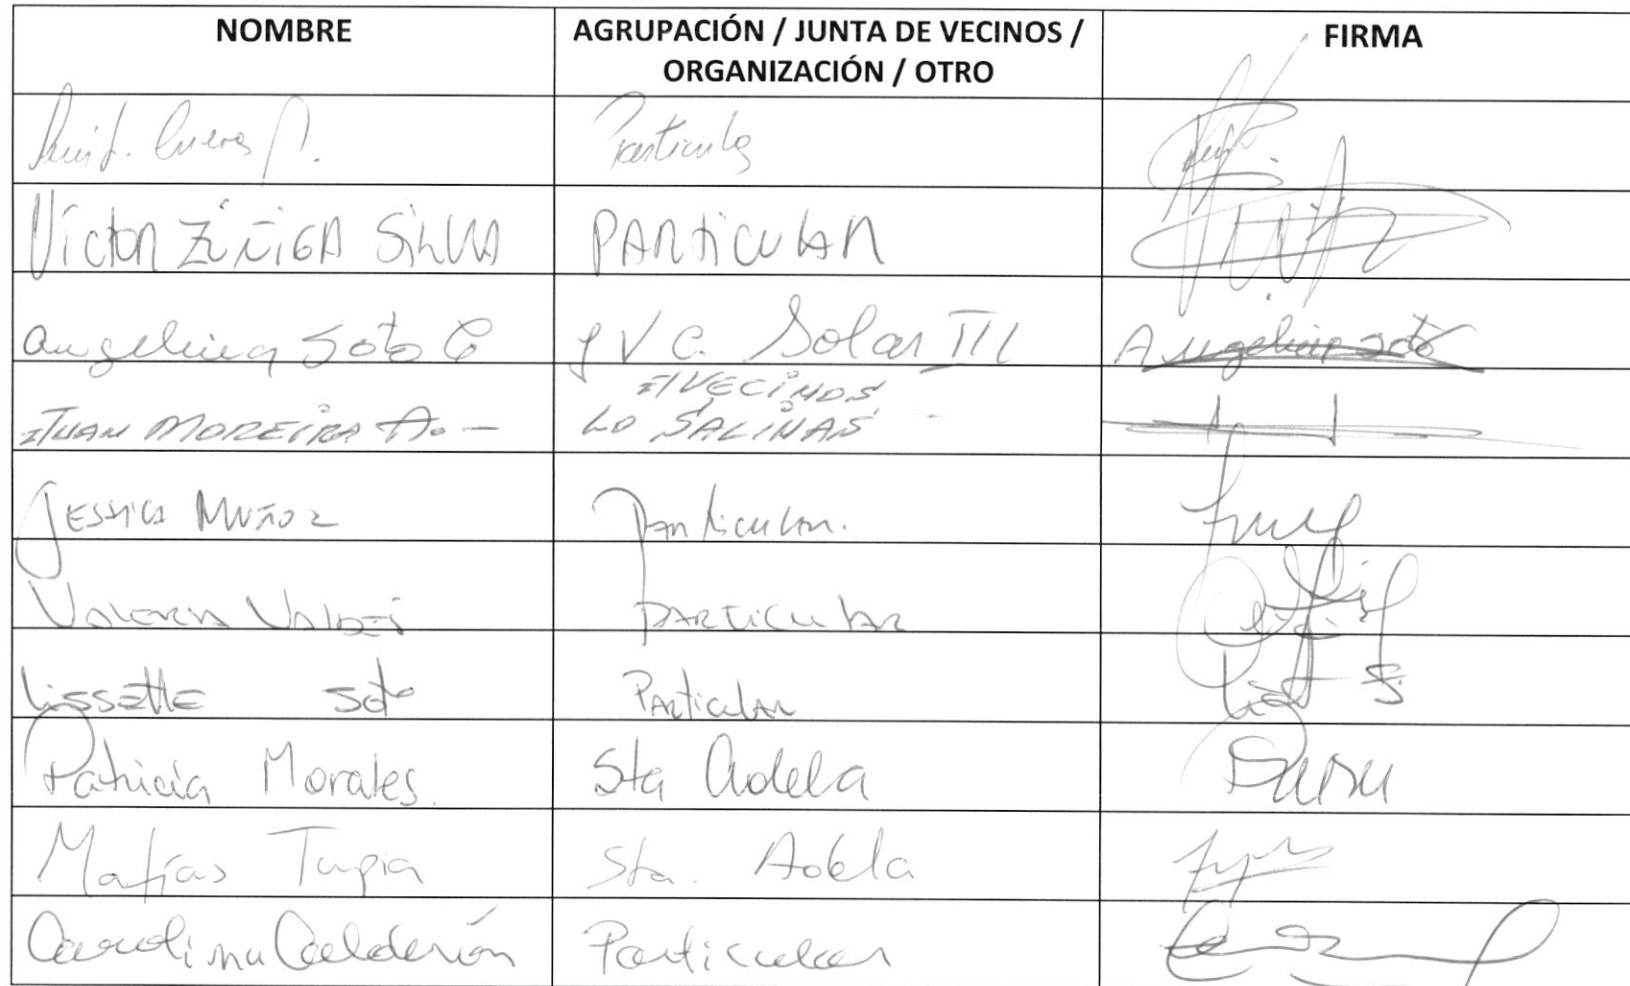 NOMBRE
AGRUPACIÓN / JUNTA DE VECINOS /
ORGANIZACIÓN / OTRO
FIRMA
Luis Cuevas P. Particular
Víctor Zúñiga Silva PARTICULAR
Angelina Soto C J V C. Solar III Angelina Soto
JUAN MOREIRA A. - J/VECINOS
LO SALINAS -
JESSICA MUÑOZ Particular.
Valeria Valdes PARTICULAR
Lissette Soto Particular Lis S.
Patricia Morales. Sta Adela
Matías Tapia Sta. Adela
Carolina Calderón Particular